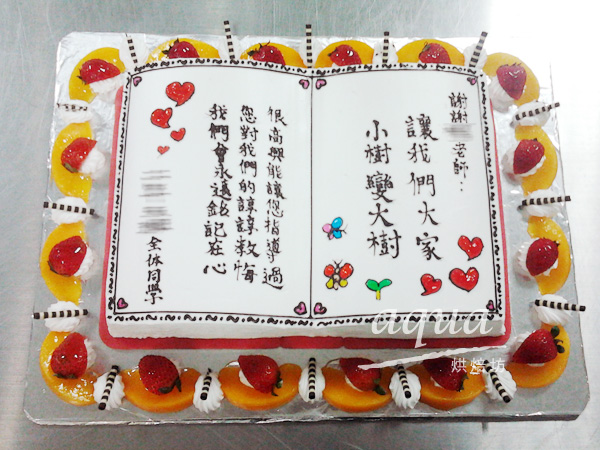 謝謝 老師：
讓我們大家
小樹變大樹
很高興能讓您指導過
您對我們的諄諄教悔
我們會永遠銘記在心
全体同學
aqua
烘焙坊